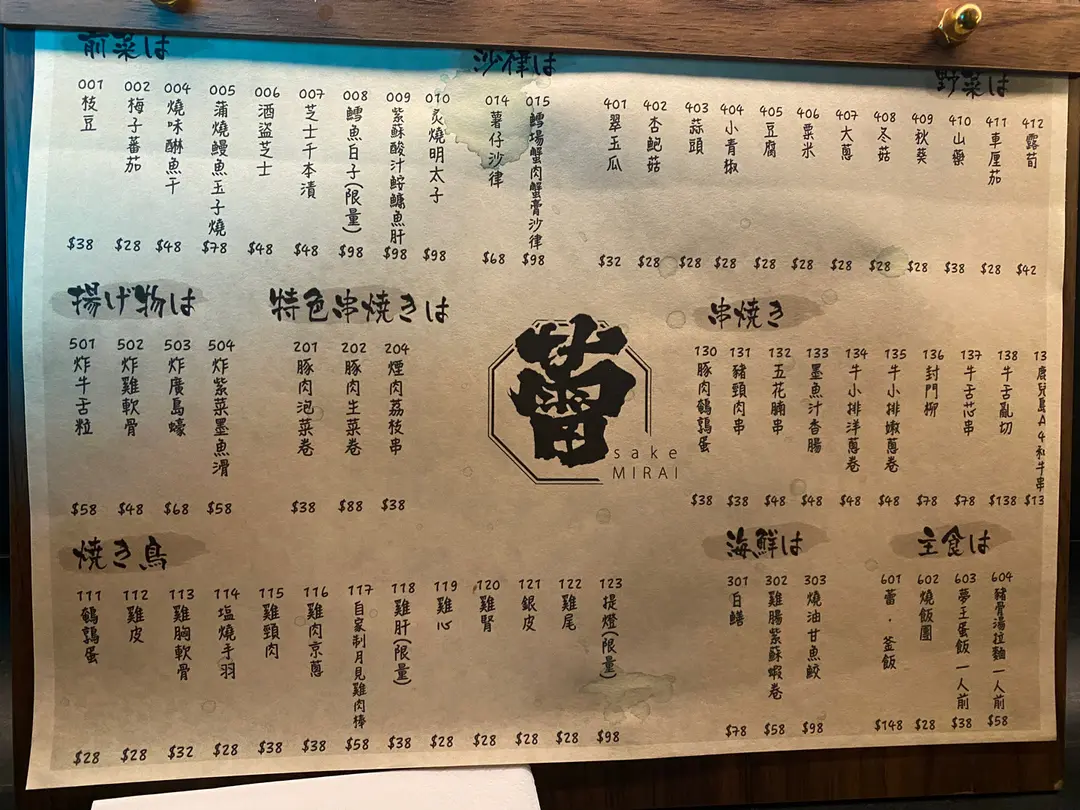 前菜は
001 枝豆 $38
002 梅子蕃茄 $28
004 燒味醂魚干 $48
005 蒲燒鰻魚玉子燒 $78
006 酒盜芝士 $48
007 芝士千本漬 $48
008 鱈魚白子(限量) $98
009 紫蘇酸汁鮟鱇魚肝 $98
010 炙燒明太子 $98
沙律は
014 薯仔沙律 $68
015 鱈場蟹肉蟹膏沙律 $98
野菜は
401 翠玉瓜 $32
402 杏鮑菇 $28
403 蒜頭 $28
404 小青椒 $28
405 豆腐 $28
406 粟米 $28
407 大蔥 $28
408 冬菇 $28
409 秋葵 $28
410 山藥 $38
411 車厘茄 $28
412 露荀 $42
揚げ物は
501 炸牛舌粒 $58
502 炸雞軟骨 $48
503 炸廣島蠔 $68
504 炸紫菜墨魚滑 $58
特色串焼きは
201 豚肉泡菜卷 $38
202 豚肉生菜卷 $88
204 煙肉荔枝串 $38
蕾
sake
MIRAI
串焼き
130 豚肉鵪鶉蛋 $38
131 豬頸肉串 $38
132 五花腩串 $48
133 墨魚汁香腸 $48
134 牛小排洋蔥卷 $48
135 牛小排嫩蔥卷 $48
136 封門柳 $78
137 牛舌芯串 $78
138 牛舌亂切 $138
13 鹿兒島A4和牛串 $13
焼き鳥
111 鵪鶉蛋 $28
112 雞皮 $28
113 雞胸軟骨 $32
114 塩燒手羽 $28
115 雞頸肉 $38
116 雞肉京蔥 $38
117 自家制月見雞肉棒 $58
118 雞肝(限量) $38
119 雞心 $28
120 雞腎 $28
121 銀皮 $28
122 雞尾 $28
123 提燈(限量) $98
海鮮は
301 白鱔 $78
302 雞腸紫蘇蝦卷 $58
303 燒油甘魚鮫 $98
主食は
601 蕾·釜飯 $148
602 燒飯團 $28
603 夢王蛋飯一人前 $38
604 豬骨湯拉麵一人前 $58